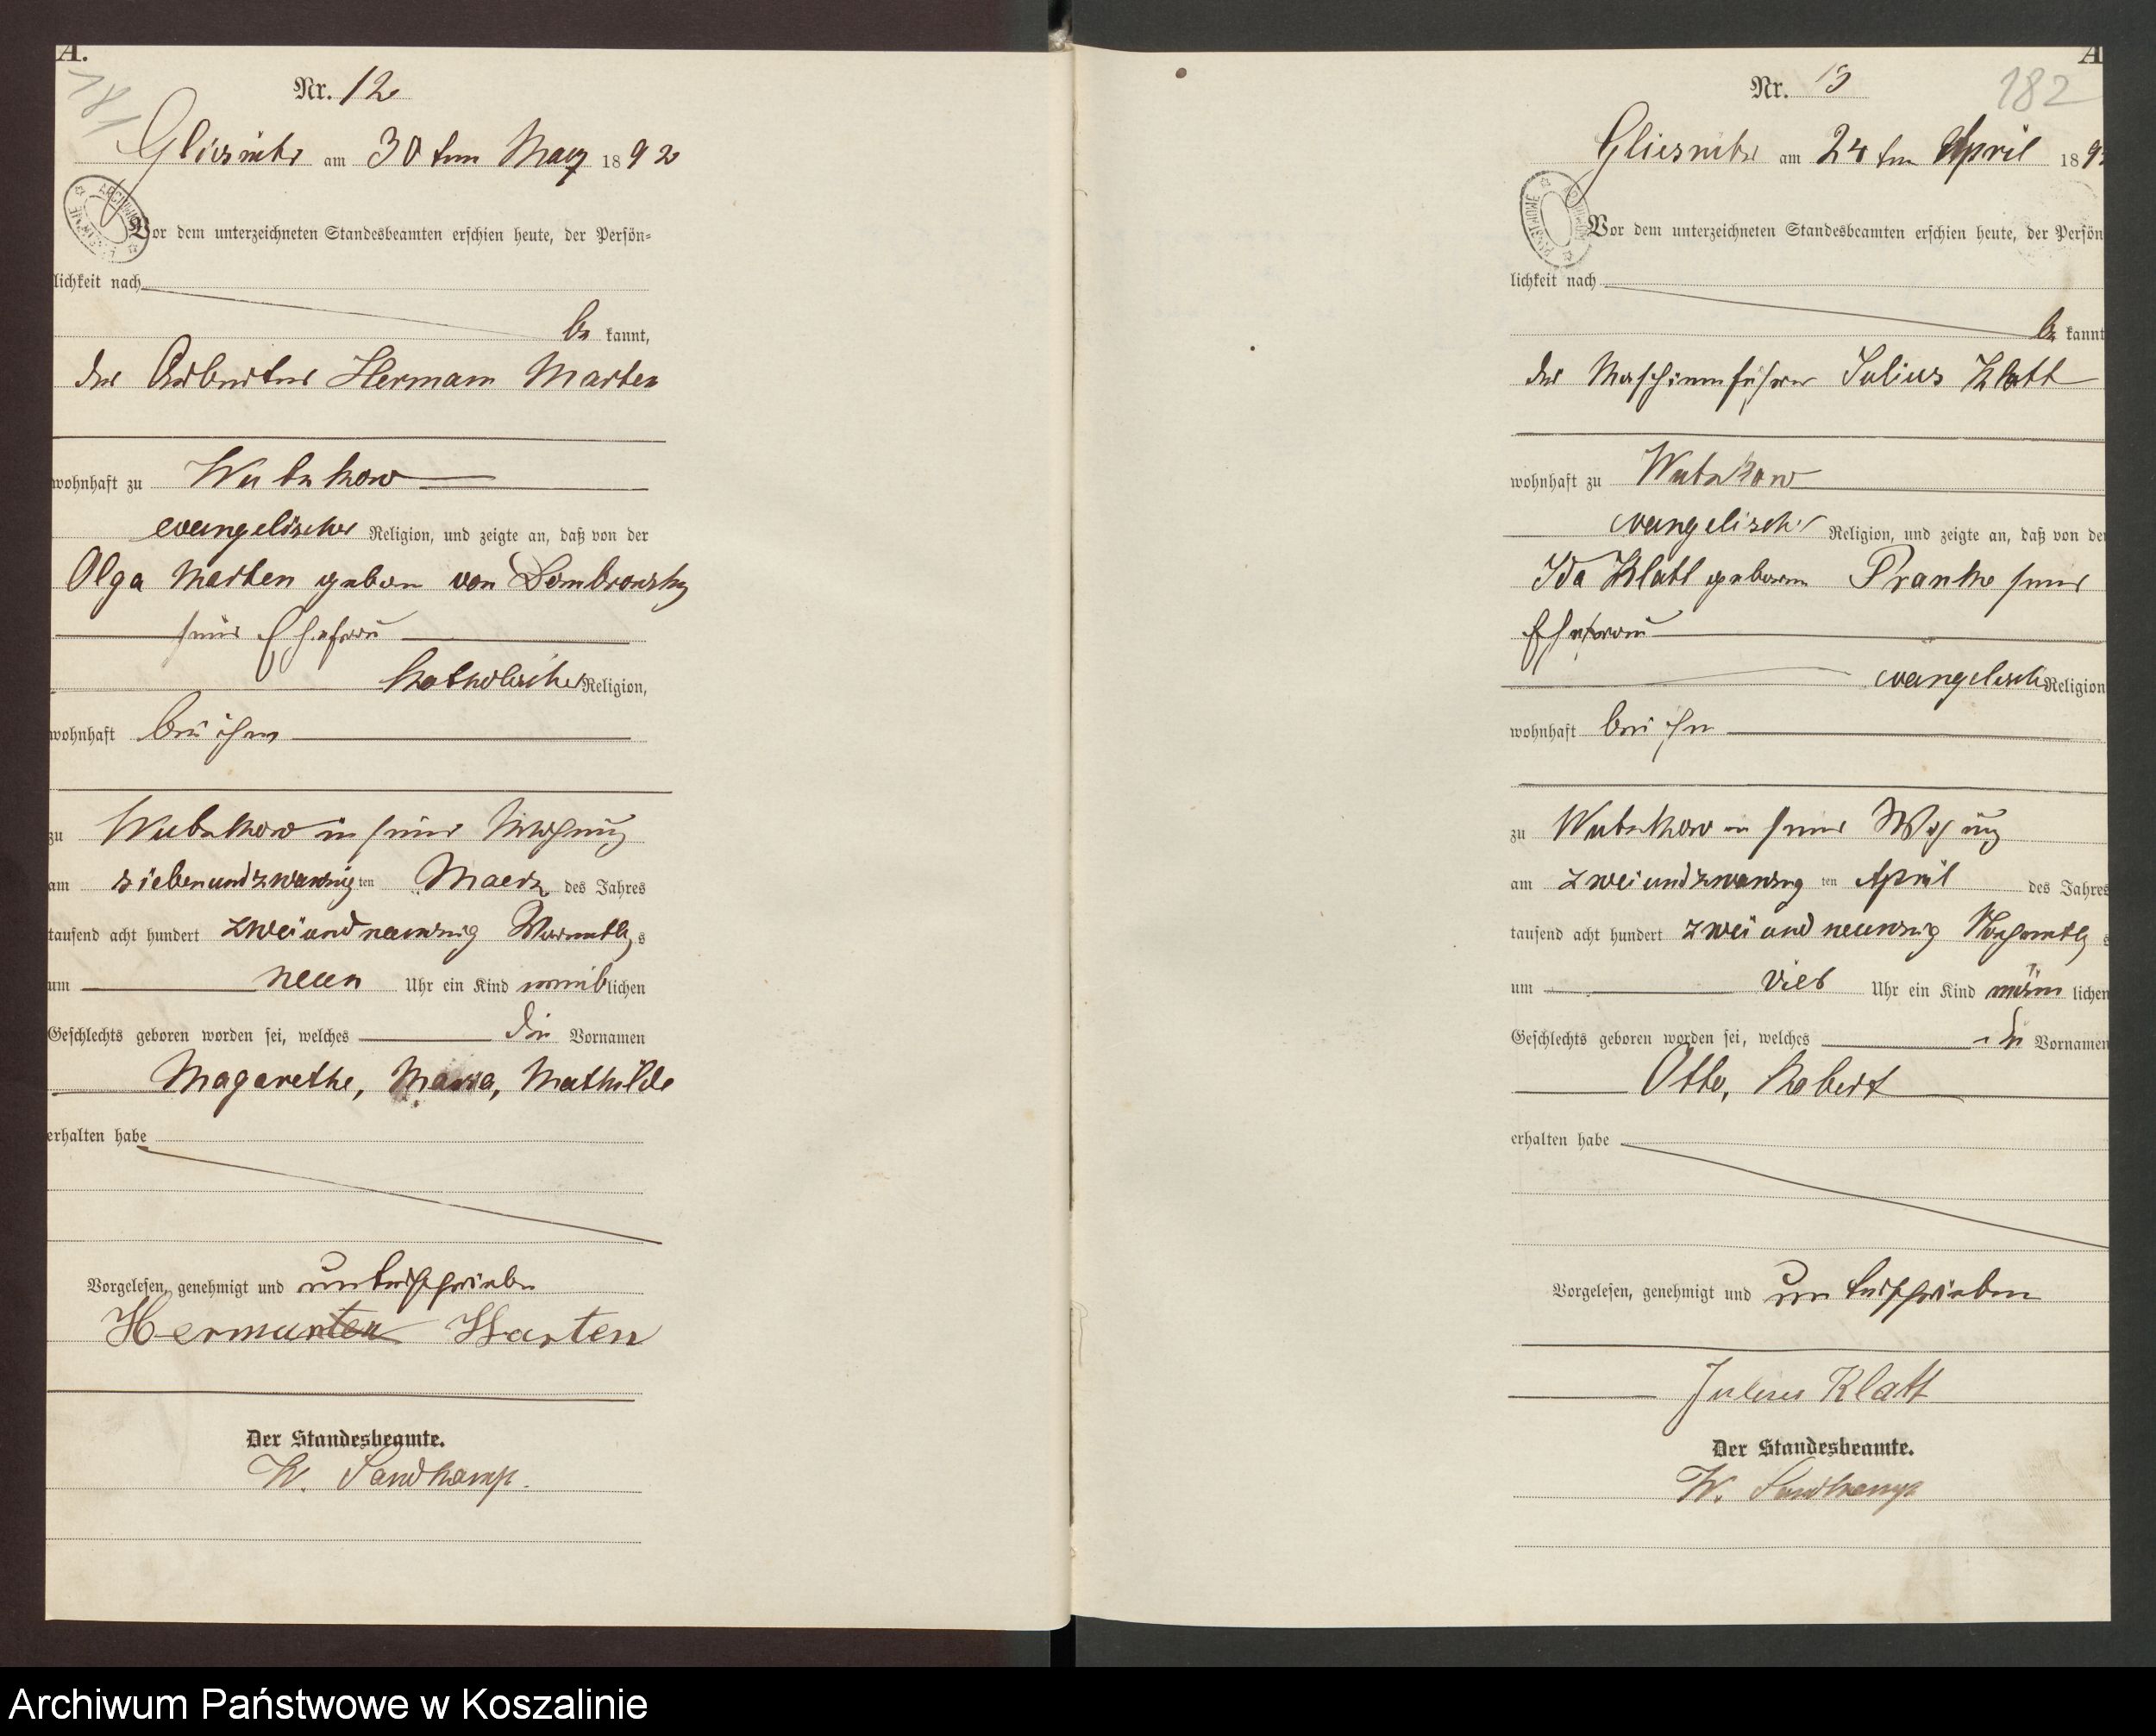 A.
181
Nr. 12
Gliesnitz am 30ten März 1892
Vor dem unterzeichneten Standesbeamten erschien heute, der Persön=
lichkeit nach
be kannt,
der Arbeiter Hermann Marten
wohnhaft zu Wutzkow
evangelischer Religion, und zeigte an, daß von der
Olga Marten geboren von Dombrowsky
seine Ehefrau
katholischer Religion,
wohnhaft bei ihm
zu Wutzkow in seiner Wohnung
am siebenundzwanzig ten Maerz des Jahres
tausend acht hundert zweiundneunzig Vormittag s
um neun Uhr ein Kind weiblichen
Geschlechts geboren worden sei, welches die Vornamen
Magarethe, Maria, Mathilde
erhalten habe
Vorgelesen, genehmigt und unterschrieben
Herman Marten
Der Standesbeamte.
W. Sandkamp.
A
182
Nr. 13
Gliesnitz am 24ten April 189
Vor dem unterzeichneten Standesbeamten erschien heute, der Persön
lichkeit nach
be kannt
der Maschinenführer Julius Klatt
wohnhaft zu Wutzkow
evangelischer Religion, und zeigte an, daß von der
Ida Klatt geborene Pranke seiner
Ehefrau
evangelisch Religion
wohnhaft bei ihm
zu Wutzkow in seiner Wohnung
am zweiundzwanzig ten April des Jahres
tausend acht hundert zwei und neunzig Nachmittag s
um vier Uhr ein Kind männ lichen
Geschlechts geboren worden sei, welches die Vornamen
Otto, Robert
erhalten habe
Vorgelesen, genehmigt und unterschrieben
Julius Klatt
Der Standesbeamte.
W. Sandkamp
Archiwum Państwowe w Koszalinie